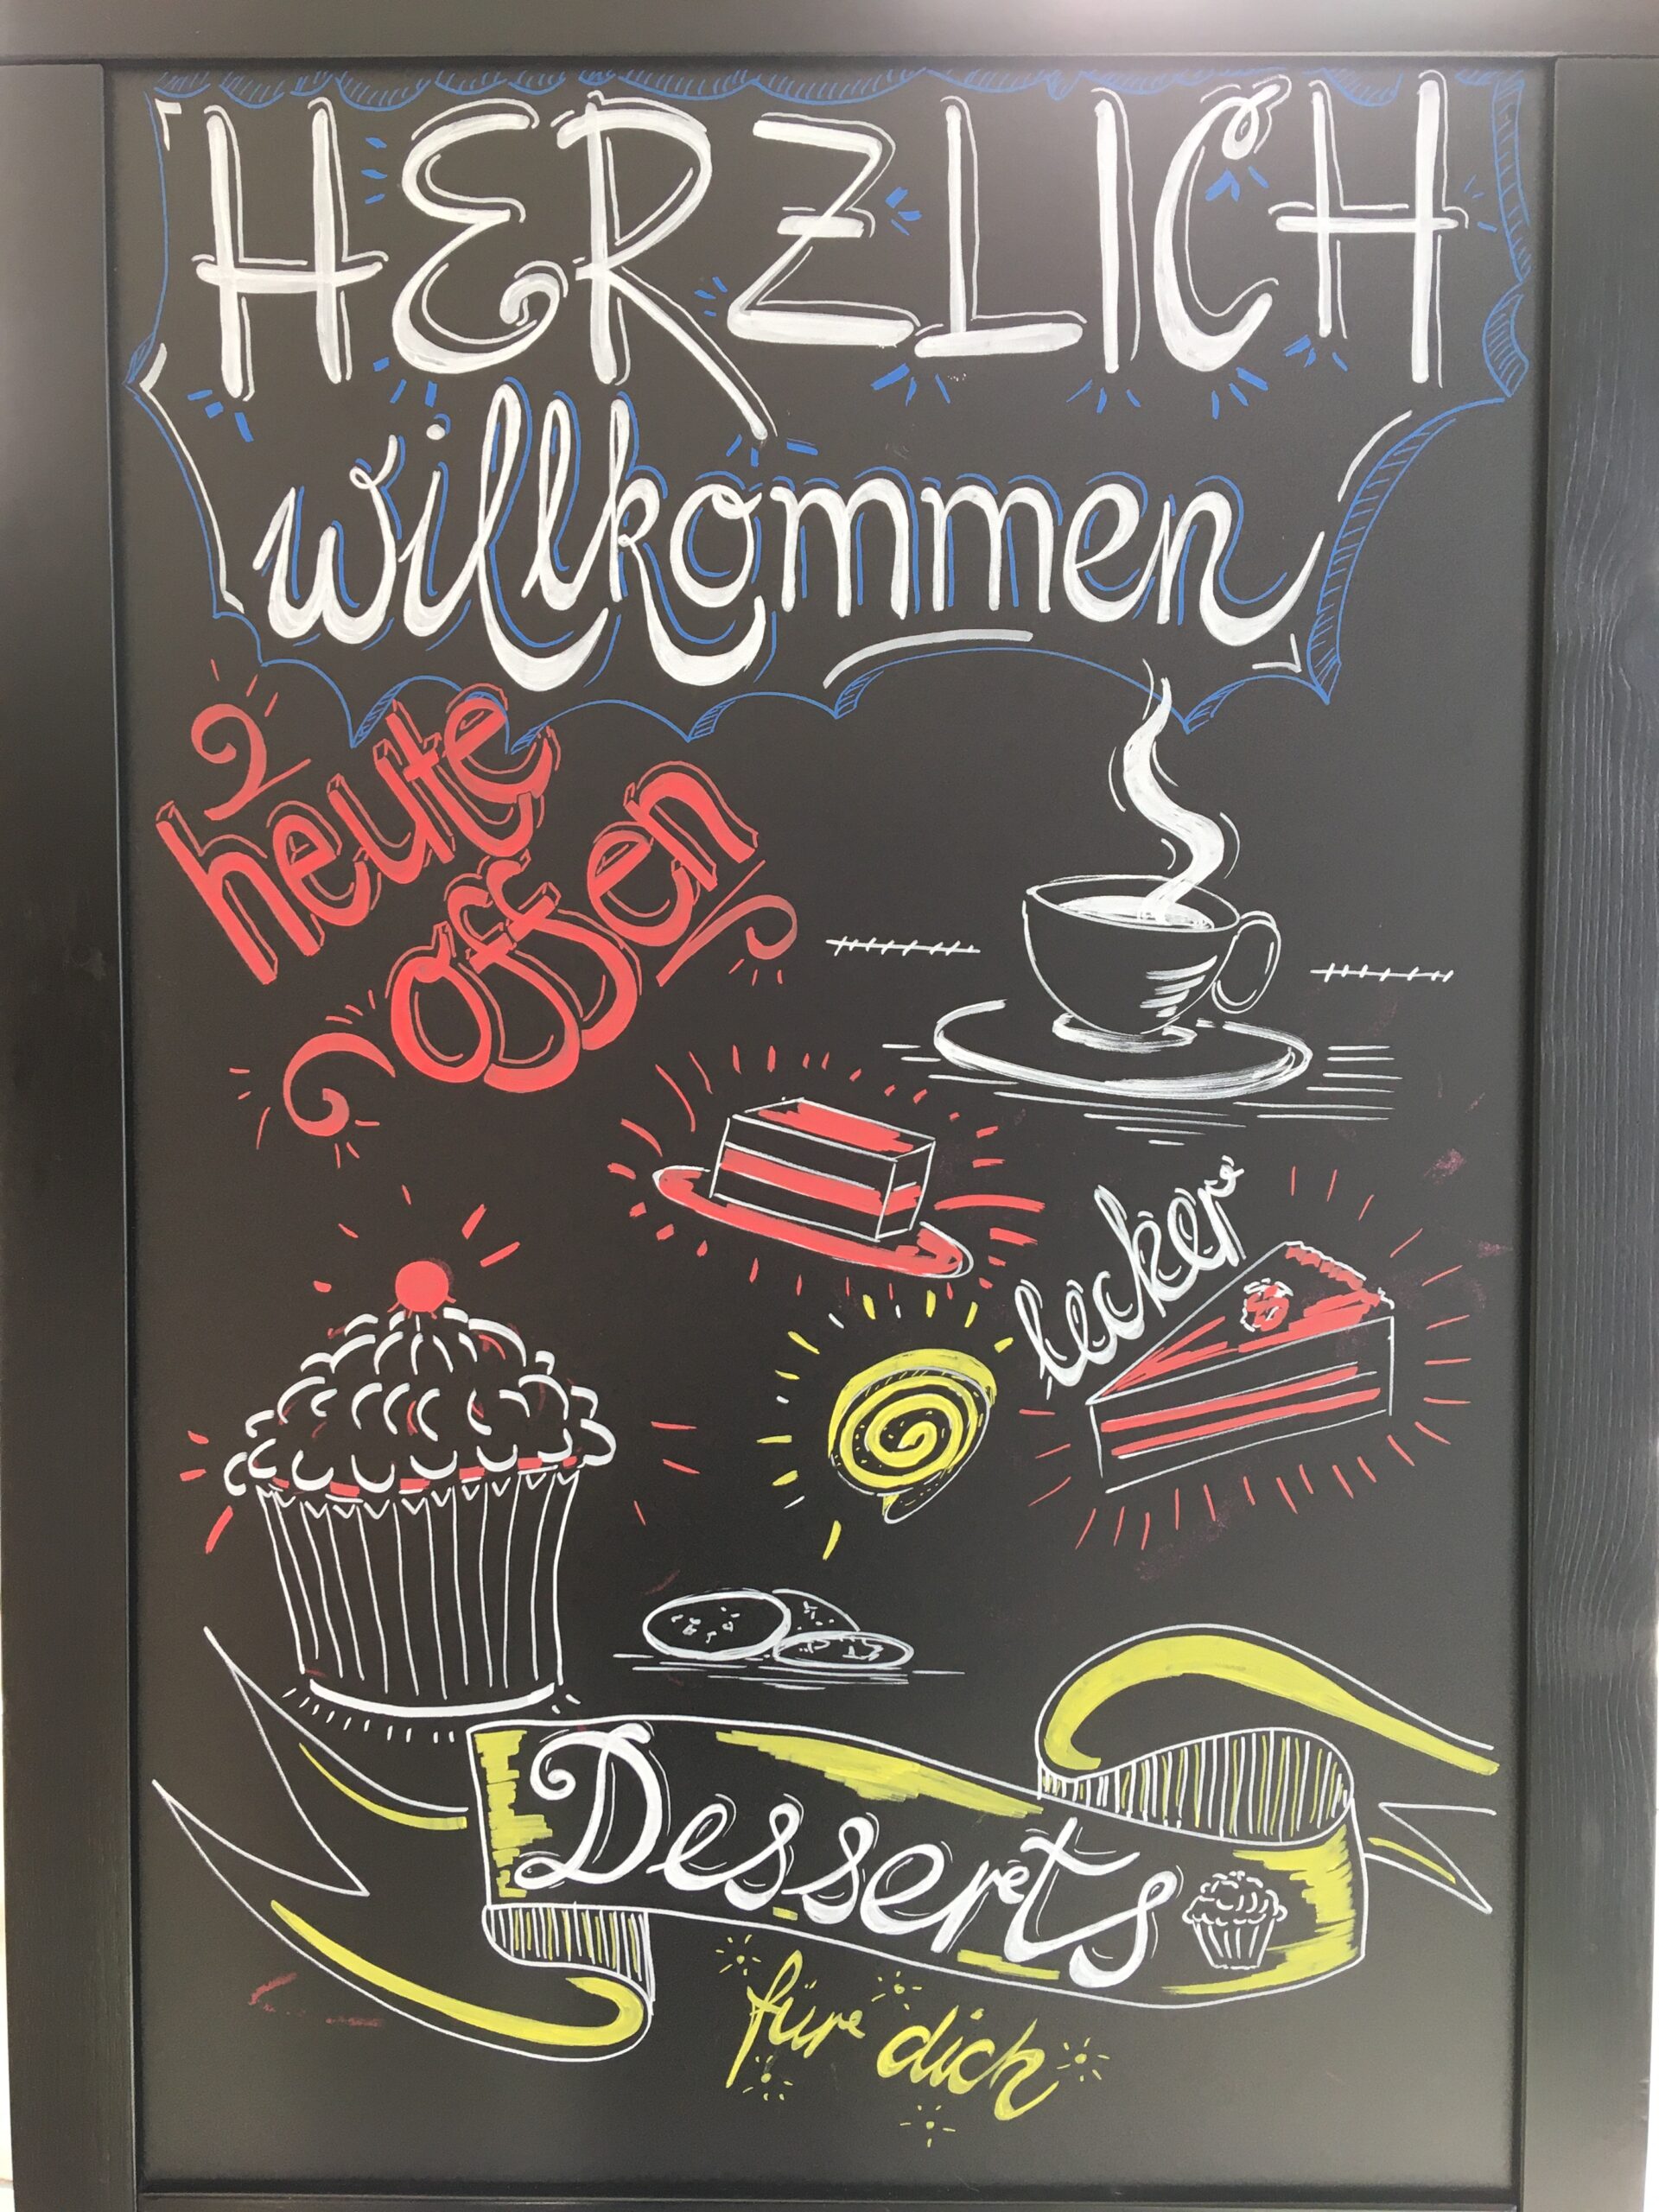 HERZLICH
willkommen
heute
offen
lecker
Desserts
für dich